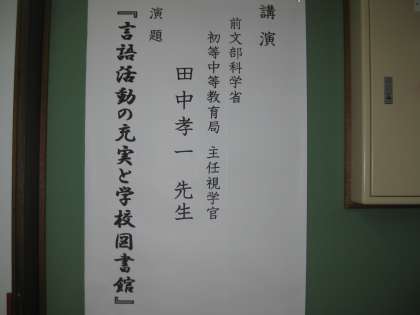 講演
前文部科学省
初等中等教育局 主任視学官
田中孝一 先生
演題
『言語活動の充実と学校図書館』